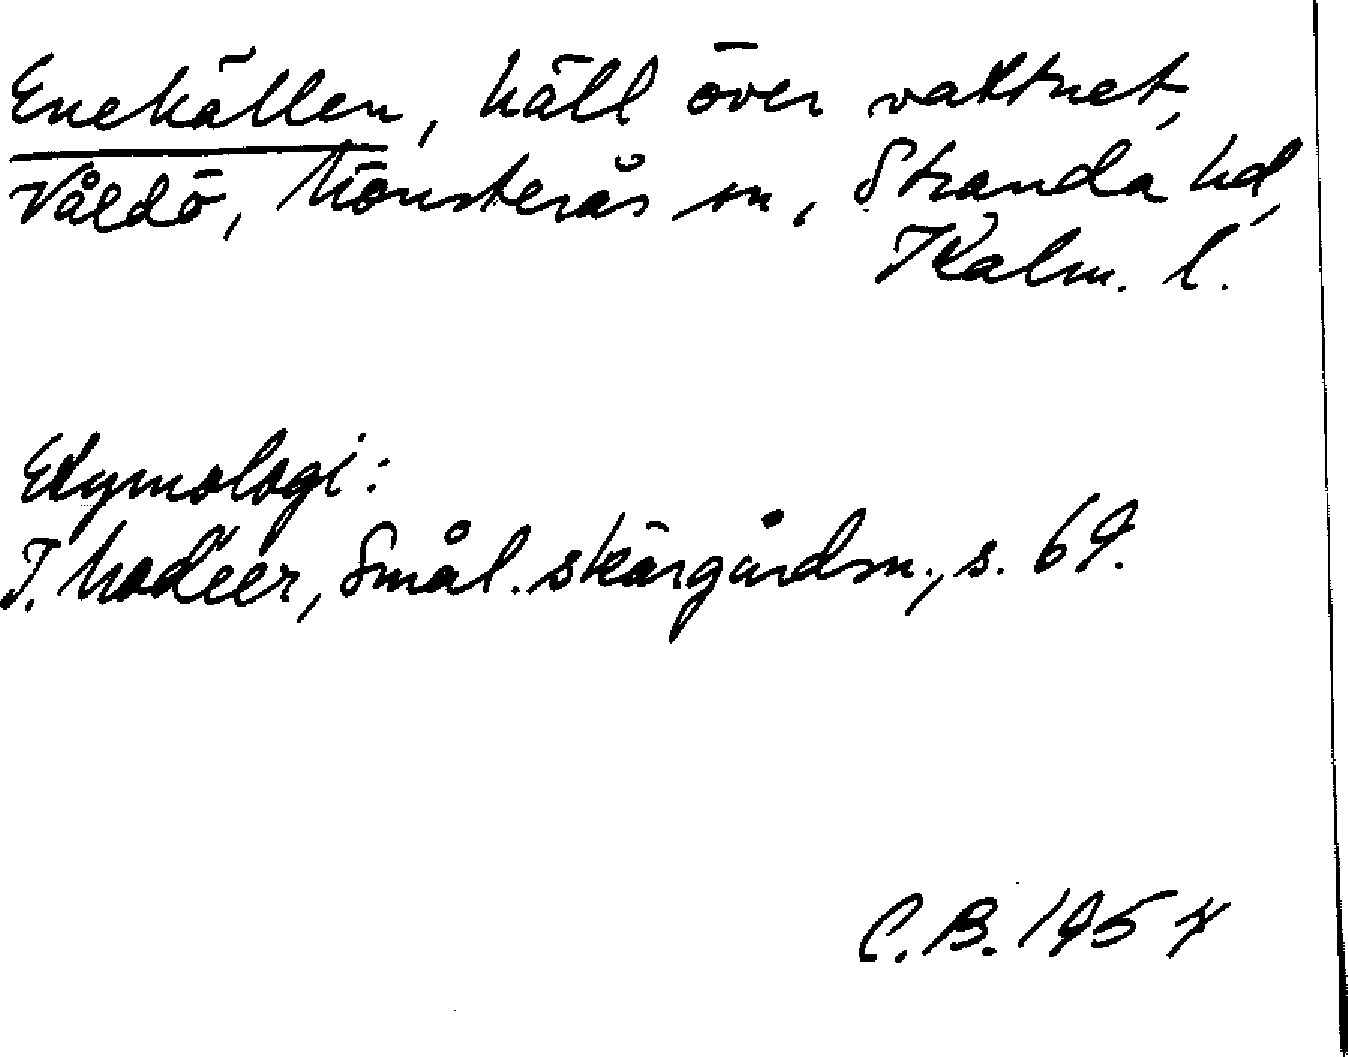 Enehällen, häll över vattnet,
Våldö, Mönsterås sn, Stranda hd,
Kalm. l.
Etymologi:
I. Modéer, Smål. skärgårdsn., s. 69.
C. B. 1957